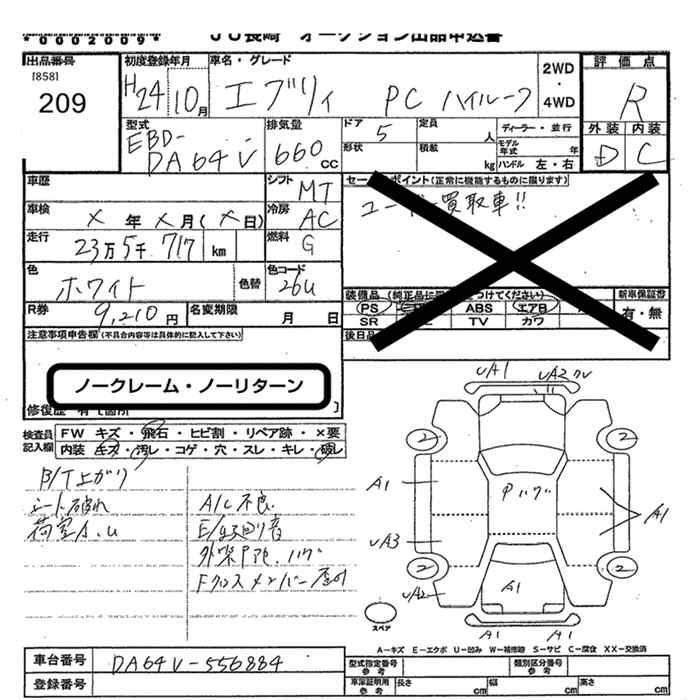 *0002009*
JU長崎 オークション出品申込書
出品番号
[858]
209
初度登録年月
H24 10月
車名・グレード
エブリィ PC ハイルーフ
2WD
・
4WD
評価点
R
外装 内装
D C
型式
EBD-
DA64V
排気量
660
CC
ドア 5
形状
定員 人
積載 kg
ディーラー・並行
モデル
年式 年
ハンドル 左・右
車歴
シフト MT
車検 X 年 X 月(X 日)
冷房 AC
走行 23万5千717 km
燃料 G
色 ホワイト 色替
色コード 26U
R券 9,210円
名変期限 月 日
セールスポイント(正常に機能するものに限ります)
ユーザー買取車!!
PS
ABS エアB
SR
TV カワ
新車保証書
有・無
後日品
注意事項申告欄(不具合内容等は具体的に記入して下さい)
ノークレーム・ノーリターン
修復歴 有
検査員
記入欄
FW キズ・飛石・ヒビ割・リペア跡・×要
内装 キズ・汚レ・コゲ・穴・スレ・キレ・破レ
B/T上がり
シート破れ
荷室A.U
A/C不良
E/g廻り音
UA1
UA2
2 2
A1
UA3
UA2
2 2
A1
A1
A1 A1
スペア
A-キズ E-エクボ U-凹み W-補修跡 S-サビ C-腐食 XX-交換済
車台番号 DA64V-556884
登録番号
型式指定番号
参考
類別区分番号
参考
車庫証明用
参考
長さ cm
幅 cm
高さ cm